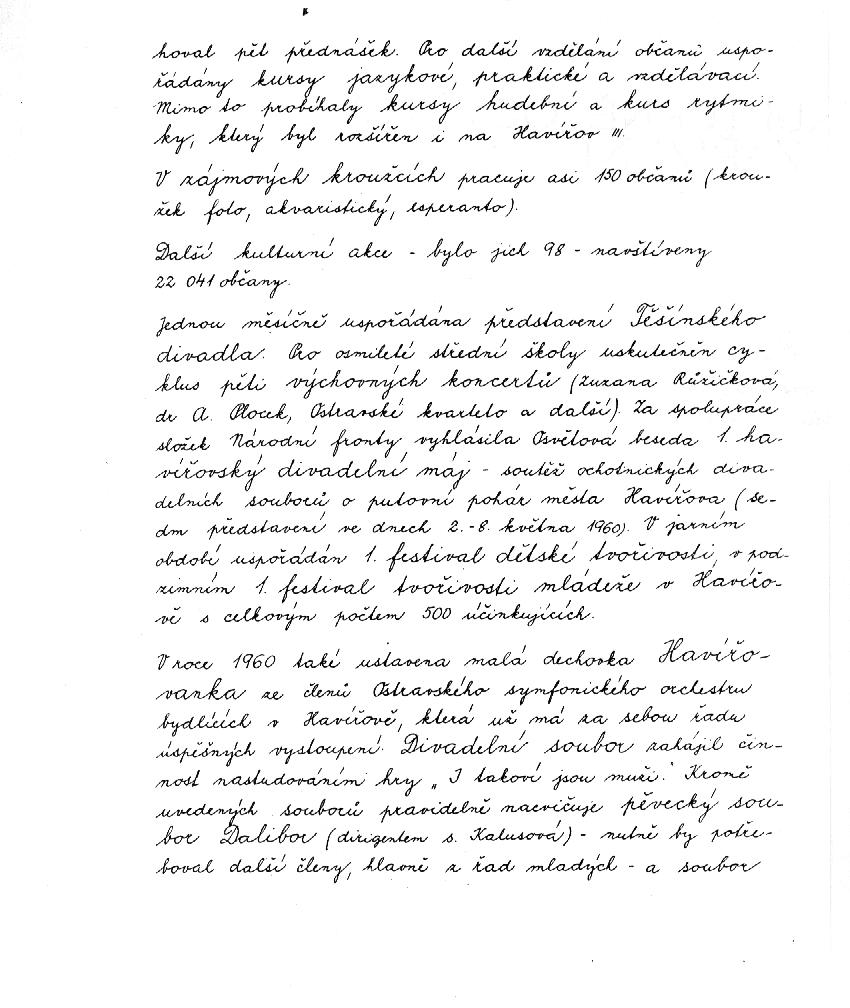 hoval pět přednášek. Pro další vzdělání občanů uspo-
řádány kursy jazykové, praktické a vzdělávací.
Mimo to probíhaly kursy hudební a kurs rytmi-
ky, který byl rozšířen i na Havířov III.
V zájmových kroužcích pracuje asi 150 občanů (krou-
žek foto, akvaristický, esperanto).
Další kulturní akce - bylo jich 98 - navštíveny
22 041 občany.
Jednou měsíčně uspořádána představení Těšínského
divadla. Pro osmileté střední školy uskutečněn cy-
klus pěti výchovných koncertů (Zuzana Růžičková,
dr A. Plocek, Ostravské kvarteto a další). Za spolupráce
složek Národní fronty vyhlásila Osvětová beseda 1. ha-
vířovský divadelní máj - soutěž ochotnických diva-
delních souborů o putovní pohár města Havířova (se-
dm představení ve dnech 2.-8. května 1960). V jarním
období uspořádán 1. festival dětské tvořivosti, v pod-
zimním 1. festival tvořivosti mládeže v Havířo-
vě s celkovým počtem 500 účinkujících.
V roce 1960 také ustavena malá dechovka Havířo-
vanka ze členů Ostravského symfonického orchestru
bydlících v Havířově, která už má za sebou řadu
úspěšných vystoupení. Divadelní soubor zahájil čin-
nost nastudováním hry „I takoví jsou muži." Kromě
uvedených souborů pravidelně nacvičuje pěvecký sou-
bor Dalibor (dirigentem s. Kalusová) - nutně by potře-
boval další členy, hlavně z řad mladých - a soubor